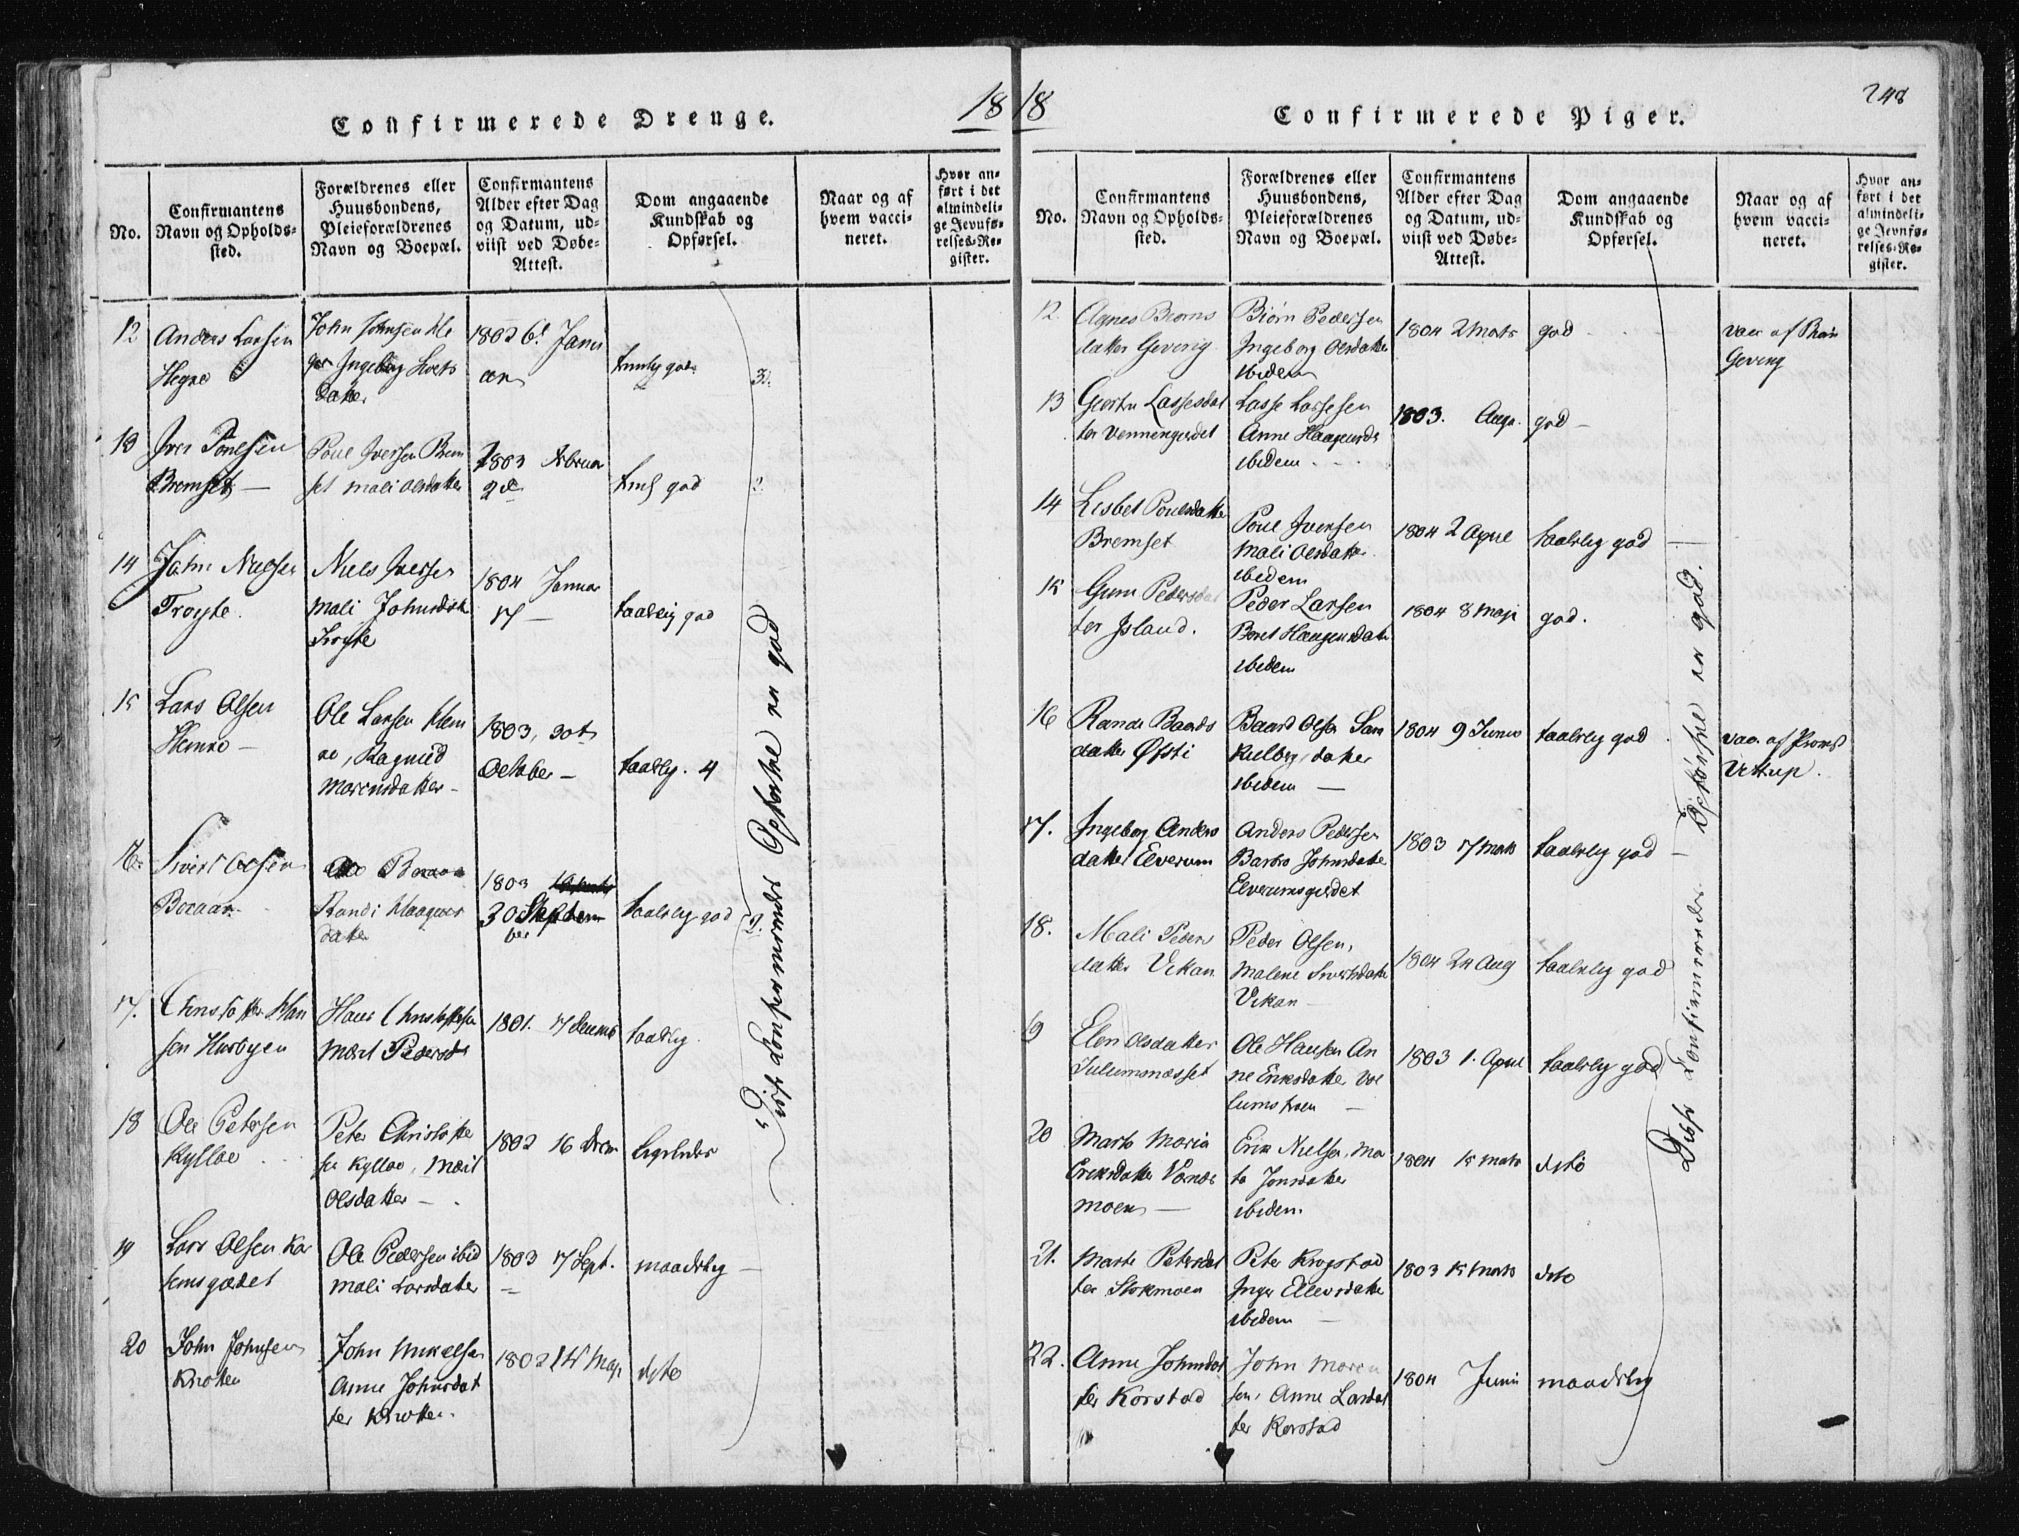 1818
248
Confirmerede Drenge.
No.
Confirmantens
Navn og Opholds-
sted.
Forældrenes eller
Huusbondens,
Pleieforældrenes
Navn og Boepæl.
Confirmantens
Alder efter Dag
og Datum, ud-
viist ved Døbe-
Attest.
Dom angaaende
Kundskab og
Opførsel.
Naar og af
hvem vacci-
neret.
Hvor an-
ført i det
almindeli-
ge Jevnfø-
relses-Re-
gister.
12
Anders Larsen
Hegre
John Johnsen He
gre Ingeborg
datter
1802 6t Janu
ar
temlig god
3.
13
Iver Poulsen
Bremset —
Poul Iversen Brem
set Mali Olsdatter
1803 Februar
2d
teml god
2.
14
John Nielsen
Trøyte.
Niels Iversen
Mali Johnsdat
Trøyte
1804 Januar
17 —
taalelig god
15
Lars Olsen
Hemre —
Ole Larsen Hem
re, Ragnild
Morensdatter —
1803, 30t
October —
taalelig. 4
16.
Sivert Olsen
Boraas.
Ole Boraas
Randi Haagens
datter
1803
30 Septem
ber
taalelig god
2.
17.
Christoffer Han
sen Husbyen
Hans Christoffersen
Marit Pedersd
1801. 17 Decemb
taalelig
18
Ole Petersen
Kylloe
Peter Christoffe
sen Kylloe, Marit
Olsdatter —
1802 16 Decm
ligeledes
19
Lars Olsen Kar
femsgjerdet
Ole Pedersen ibid
Mali Larsdatter
1803 17 Sept.
maadelig —
20
John Johnsen
Knotten
John Mikelsen
Anne Johnsdat
ter Knotten.
1802 14 Maji
dito
Disse Confirmerendes Opførsel er god
Confirmerede Piger.
No.
Confirmantens
Navn og Opholds-
sted.
Forældrenes eller
Huusbondens,
Pleieforældrenes
Navn og Boepæl.
Confirmantens
Alder efter Dag
og Datum, ud-
viist ved Døbe-
Attest.
Dom angaaende
Kundskab og
Opførsel.
Naar og af
hvem vacci-
neret.
Hvor an-
ført i det
almindeli-
ge Jevnfø-
relses-Re-
gister.
12
Agnes Biørns
datter Geving
Biørn Pedersen
Ingeborg Olsdatter
ibidem
1804 2 Marts
god
vac: af
Geving
13
Giertru Lassesdat
ter Venningerdet
Lasse Larsesen
Anne Haagensda
ibidem
1803. Aug.
god —
14
Lisbet Poulsdatte
Bremset
Poul Iversen
Mali Olsdatter
ibidem
1804 2 April
taalelig god
15
Guru Pedersdat
ter Island.
Peder Larsen
Beret Haagensdat
ibidem
1804 8 Maji
god.
16
Rande Baards
datter Øfsti
Baard Olsen San
kielberg, datter
ibidem —
1804 9 Junio
taalelig god
vac. af Provst
Vittrup.
17.
Ingeborg Anders
datter Elverum
Anders Pedersen
Barbro Johnsdatte
Elverumsgierdet
1803 17 Marts
taalelig god
18.
Mali Peders
datter Vikan
Peder Olsen,
Malene Sivertsdatte
Vikan —
1804 24 Aug
taalelig god
19
Elen Olsdatter
Julumsnæsset
Ole Hansen An
ne Eriksdatte
1803 1. April
taalelig god
20
Marte Maria
Eriksdatter Værnes
moen —
Erik Nielsen, Ma
ta Jonsdatter
ibidem.
1804 15 Marts
dito
21.
Marte Petersdat
ter Stokmoen
Peter Krogstad
Inger Ellevsdatte
ibidem —
1803 15 Marts
dito
22.
Anne Johnsdat
ter Korstad
John Moren
sen, Anne Larsdat
ter Korstad
1804 Juni
maadelig
Disse Confirmerendes Opførsel er god.